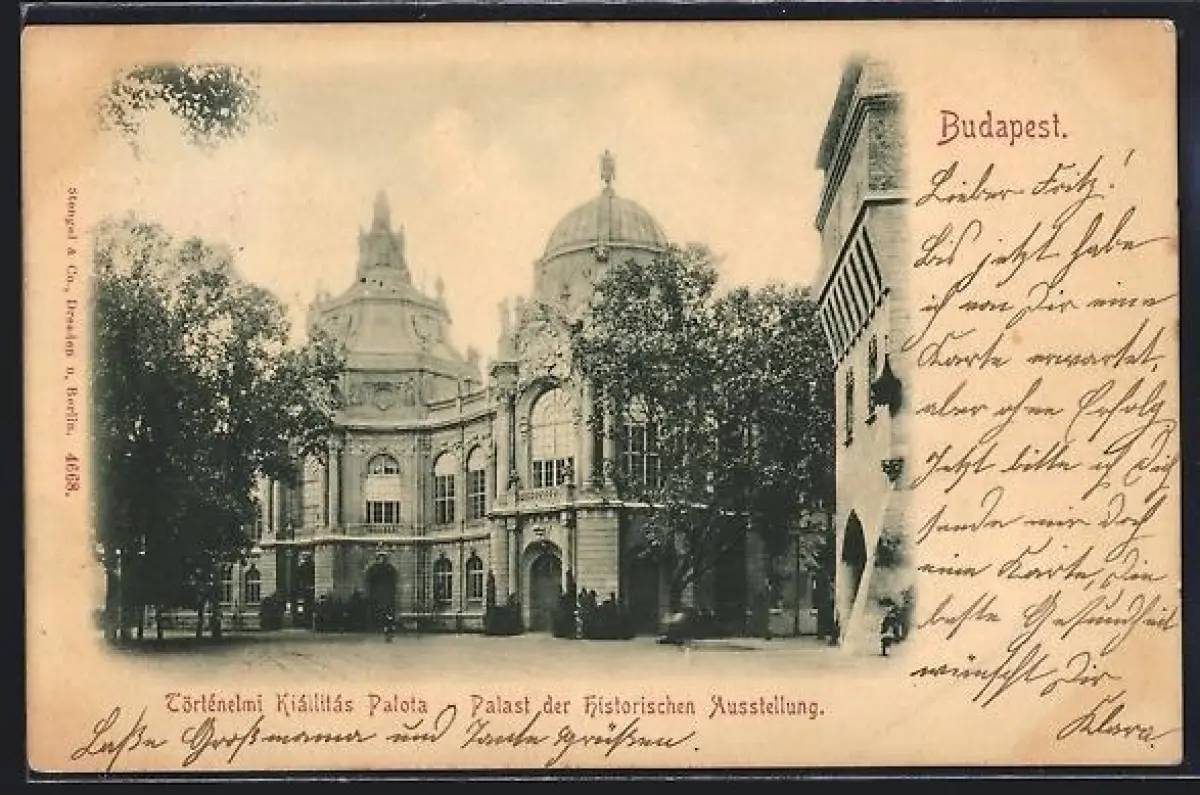 Budapest.
Lieber Fritz!
Bis jetzt habe
ich von Dir eine
Karte erwartet,
aber ohne Erfolg
Jetzt bitte ich Dich
sende mir doch
eine Karte, die
beste Gesundheit
wünscht Dir
Klara
Stengel & Co., Dresden u. Berlin. 4668.
Történelmi Kiállitás Palota Palast der Historischen Ausstellung.
Lasse Großmama und Tante grüßen.